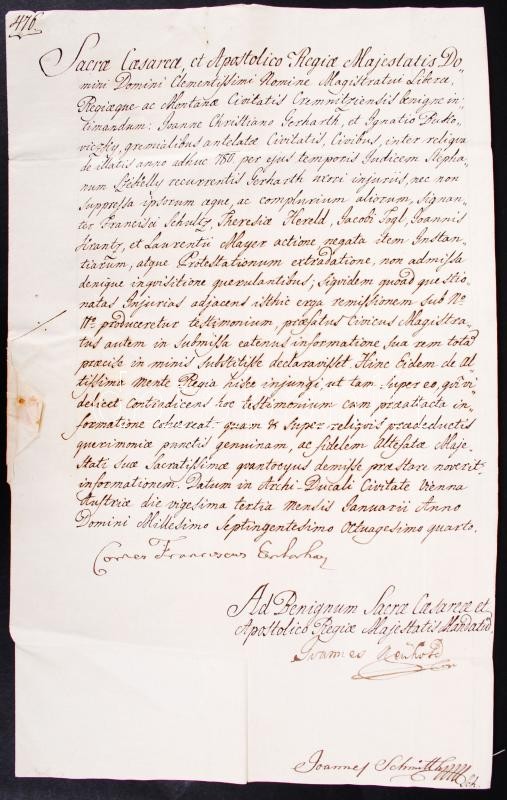 476.
Sacræ Cæsareæ, et Apostolico Regiæ Majestatis, Do
mini Domini Clementissimi Nomine Magistratui Liberæ,
Regiæque ac Montanæ Civitatis Cremnitziensis benigne in
timandum: Joanne Christiano Gerharth, et Ignatio
gremialibus antelatæ Civitatis, Civibus, inter reliqua
de illatis anno adhuc per ejus temporis Judicem Stepha
num recurrentis Gerharth nexci injuriis, nec non
Suppressa ipsorum æque, ac complurium aliorum, Signan
ter Francisci Schultz, Theresiæ Hereld, Jacobi Joannis
Krantz, et Laurentii Mayer actione negata item Instan
tiarum, atque Protestationum extradatione, non admissa
denique inquisitione querulantibus; Siquidem quoad questio
natas Injurias adjacens isthic erga remissionem sub No
produceretur testimonium, præfatus Civicus Magistra
tus autem in Submissa eatenus informatione sua rem totam
præcise in minis Substitisse declaravisset Hinc Eidem de Al
tissima mente Regia hisce injungi, ut tam Super eo, qui vi
delicet Contradicens hoc testimonium cum præattacta in
formatione cohæreat, quam & Super reliquis prædeductis
querimoniæ punctis genuinam, ac fidelem Altefatæ Maje
Stati Suæ Sacratissimæ quantocyus demisse præstare noverit
informationem. Datum in Archi-Ducali Civitate Vienna
Austriæ die vigesima tertia mensis Januarii Anno
Domini Millesimo Septingentesimo Octuagesimo quarto.
Comes Franciscus
Ad Benignum Sacræ Cæsareæ et
Apostolico Regiæ Majestatis Mandatum
Joannes
Joannes